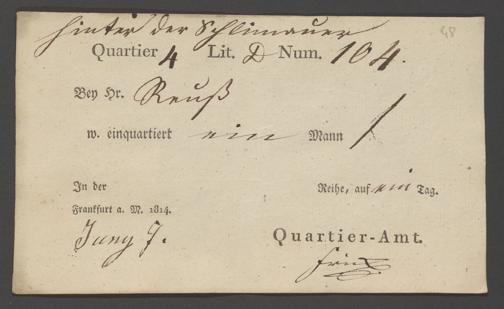 hinter der Schlimauer
Quartier 4 Lit. D Num. 104.
Bey Hr. Reuß
w. einquartiert ein Mann /
In der Reihe, auf ein Tag.
Frankfurt a. M. 1814.
Juny 7. Quartier-Amt.
48